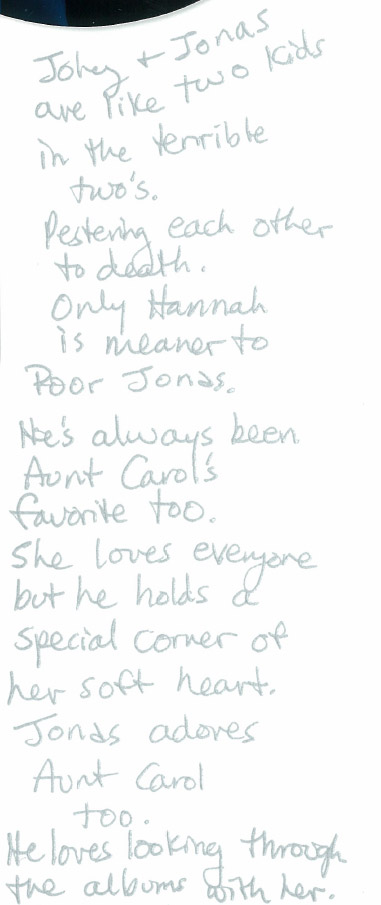 Johey + Jonas
are like two kids
in the terrible
two's.
Pestering each other
to death.
Only Hannah
is meaner to
Poor Jonas.
He's always been
Aunt Carol's
favorite too.
She loves everyone
but he holds a
special corner of
her soft heart.
Jonas adores
Aunt Carol
too.
He loves looking through
the albums with her.